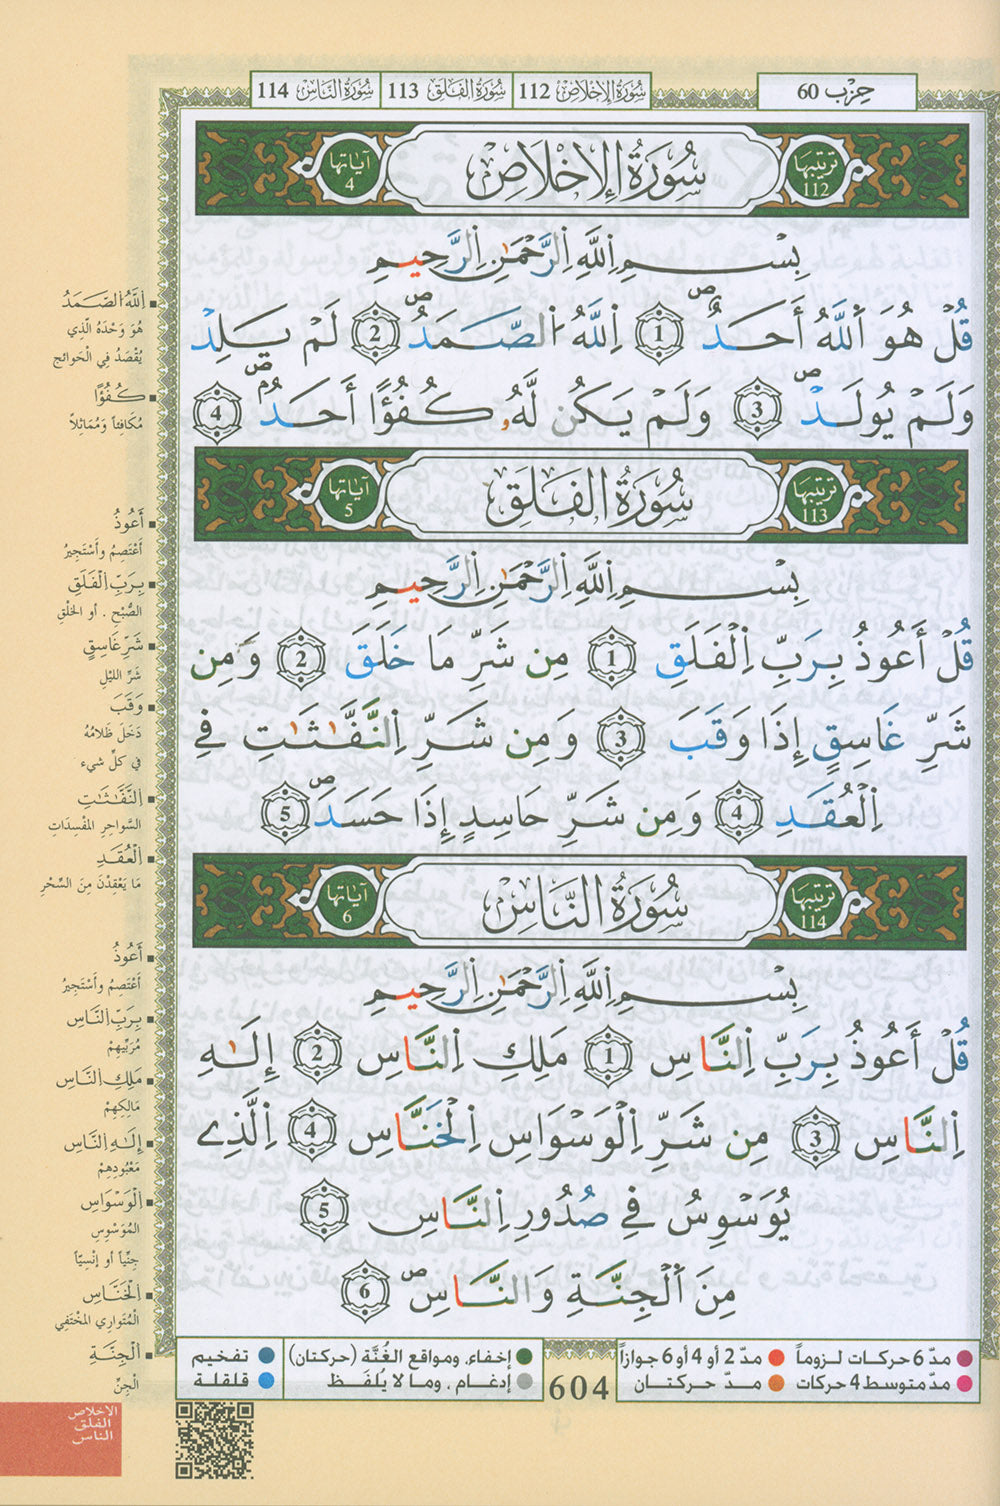 حِزْب 60
سُورَةُ الإِخْلَاصِ 112 سُورَةُ الفَلَقِ 113 سُورَةُ النَّاسِ 114
ترتيبها 112 سُورَةُ الإِخْلَاصِ آياتها 4
بِسْمِ اِللَّهِ اِلرَّحْمَٰنِ اِلرَّحِيمِ
قُلْ هُوَ اَللَّهُ أَحَدٌۖ 1 اِللَّهُ اُلصَّمَدُۖ 2 لَمْ يَلِدْ
وَلَمْ يُولَدْۖ 3 وَلَمْ يَكُن لَّهُۥ كُفُؤًا أَحَدٌۖ 4
ترتيبها 113 سُورَةُ الفَلَقِ آياتها 5
بِسْمِ اِللَّهِ اِلرَّحْمَٰنِ اِلرَّحِيمِ
قُلْ أَعُوذُ بِرَبِّ اِلْفَلَقِ 1 مِن شَرِّ مَا خَلَقَ 2 وَمِن
شَرِّ غَاسِقٍ إِذَا وَقَبَ 3 وَمِن شَرِّ اِلنَّفَّٰثَٰتِ فِے
اِلْعُقَدِ 4 وَمِن شَرِّ حَاسِدٍ إِذَا حَسَدَۖ 5
ترتيبها 114 سُورَةُ النَّاسِ آياتها 6
بِسْمِ اِللَّهِ اِلرَّحْمَٰنِ اِلرَّحِيمِ
قُلْ أَعُوذُ بِرَبِّ اِلنَّاسِ 1 مَلِكِ اِلنَّاسِ 2 إِلَٰهِ
اِلنَّاسِ 3 مِن شَرِّ اِلْوَسْوَاسِ اِلْخَنَّاسِ 4 اِلَّذِے
يُوَسْوِسُ فِے صُدُورِ اِلنَّاسِ 5
مِنَ اَلْجِنَّةِ وَالنَّاسِۖ 6
اَللَّهُ اُلصَّمَدُ
هُوَ وَحْدَهُ الَّذِي
يُقْصَدُ فِي الْحَوائج
كُفُؤًا
مُكَافِئاً وَمُمَاثِلاً
أَعُوذُ
أَعْتَصِمُ وأَسْتَجِيرُ
بِرَبِّ اِلْفَلَقِ
الصُّبْحِ . أو الخَلْقِ
شَرِّ غَاسِقٍ
شَرِّ اللَّيْلِ
وَقَبَ
دَخَلَ ظَلَامُهُ
في كلِّ شيء
اَلنَّفَّٰثَٰتِ
السَّواحِرِ المُفْسِدَاتِ
اِلْعُقَدِ
مَا يَعْقِدْنَ مِنَ السِّحْرِ
أَعُوذُ
أَعْتَصِمُ وأَسْتَجِيرُ
بِرَبِّ اِلنَّاسِ
مُرَبِّيهِمْ
مَلِكِ اِلنَّاسِ
مَالِكِهِمْ
إِلَٰهِ اِلنَّاسِ
مَعْبُودِهِمْ
اِلْوَسْوَاسِ
المُوَسْوِسِ
جِنِّياً أو إنْسِيّاً
اِلْخَنَّاسِ
الْمُتَوارِي المخْتَفِي
اَلْجِنَّةِ
الْجِنّ
مدّ 6 حركات لـزوماً مدّ 2 أو 4 أو 6 جوازاً إخفاء، ومواقع الغُنَّة (حركتان) تفخيم
مدّ متوسط 4 حركات مـدّ حركتـان إدغام ، وما لا يُلفَـظ قلقلة
604
الإخلاص
الفلق
الناس